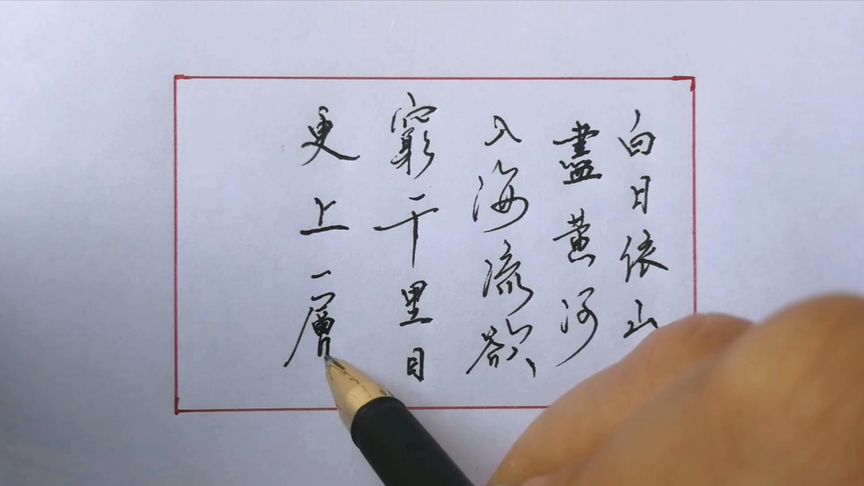 白日依山
盡黄河
入海流欲
窮千里目
更上一層